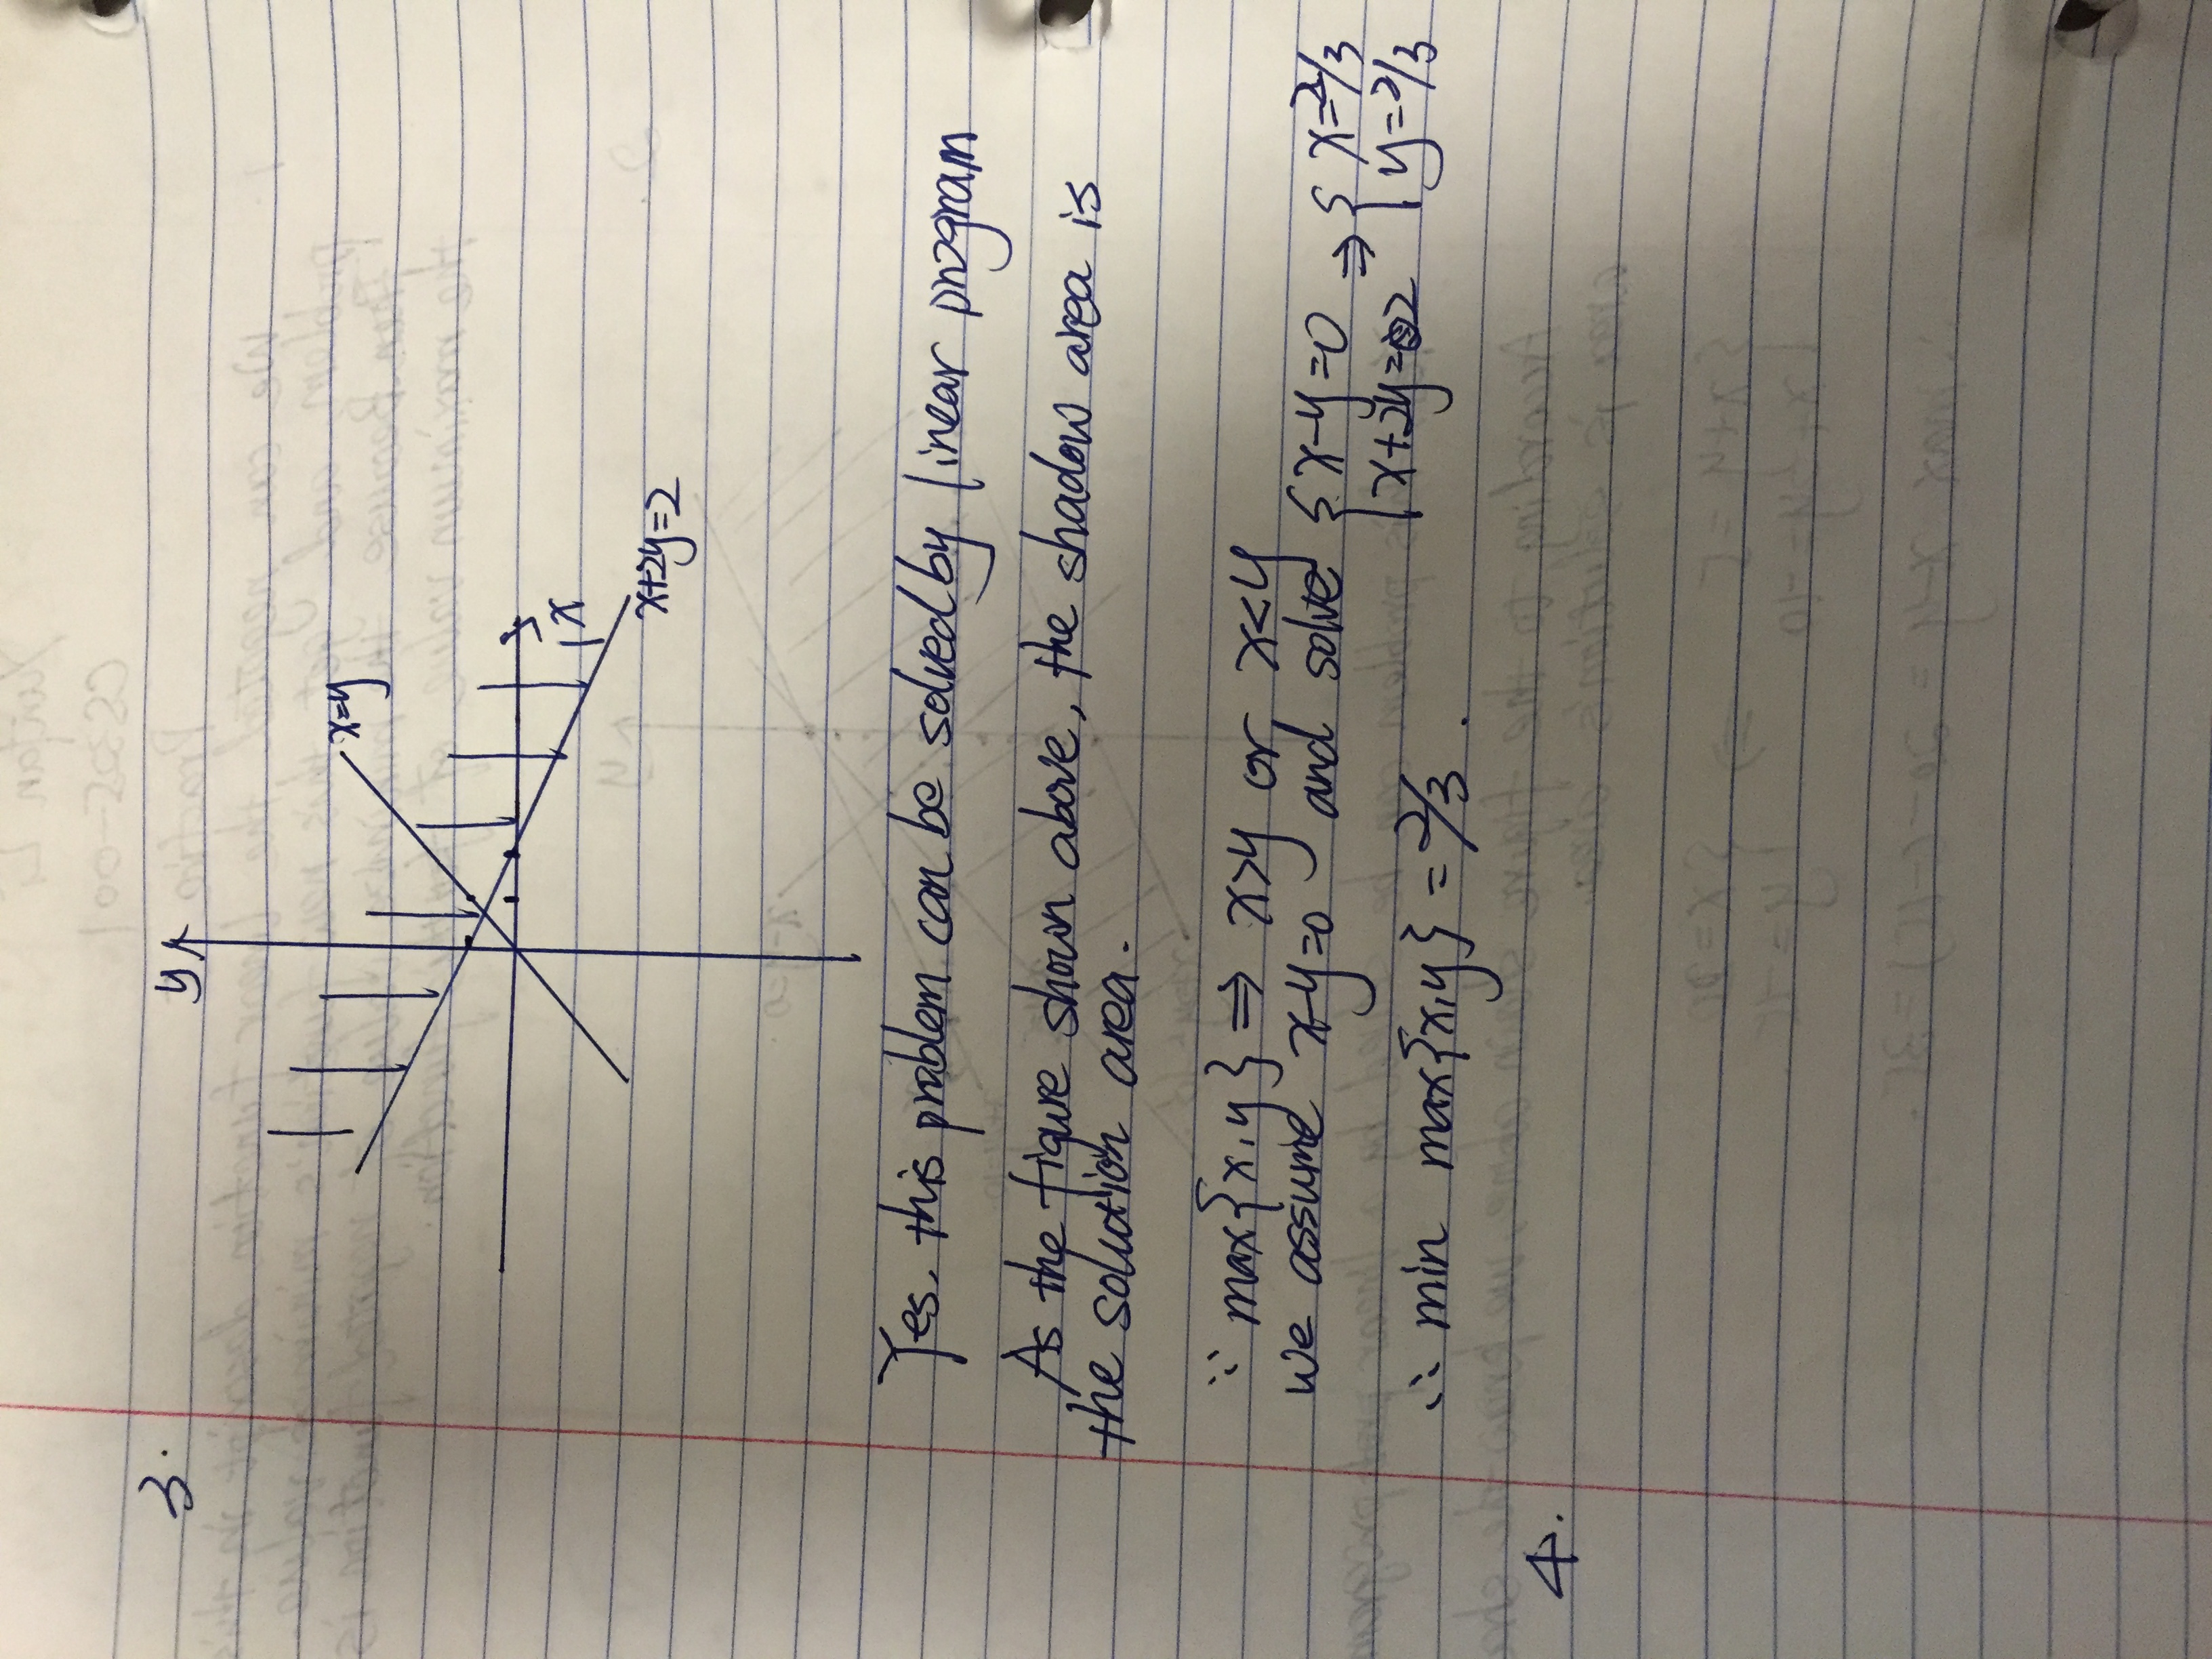 3.
y
x=y
x
x+2y=2
Yes, this problem can be solved by linear program
As the figure shown above, the shadow area is
the solution area.
∵ max{x,y} ⇒ x>y or x<y
we assume x-y=0 and solve { x-y=0 ⇒ { x=2/3
x+2y=2 y=2/3
∴ min max{x,y} = 2/3.
4.